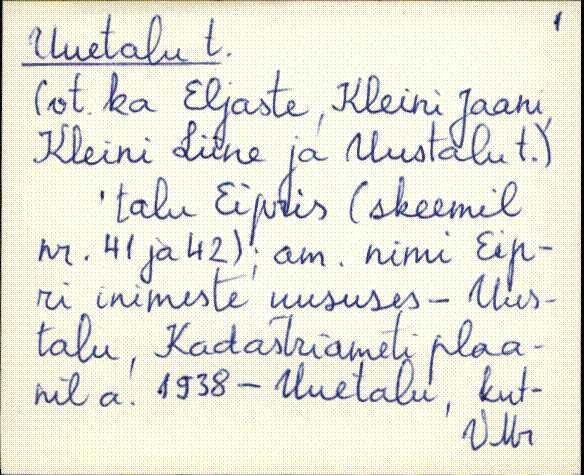 1
Uuetalu t.
(vt. ka Eljaste, Kleini Jaani,
Kleini Liine ja Uustalu t.)
'talu Eipris (skeemil
nr. 41 ja 42); am. nimi Eip-
ri inimeste uususes – Uus-
talu, Kadastriameti plaa-
nil a. 1938 – Uuetalu, kut-
VMr